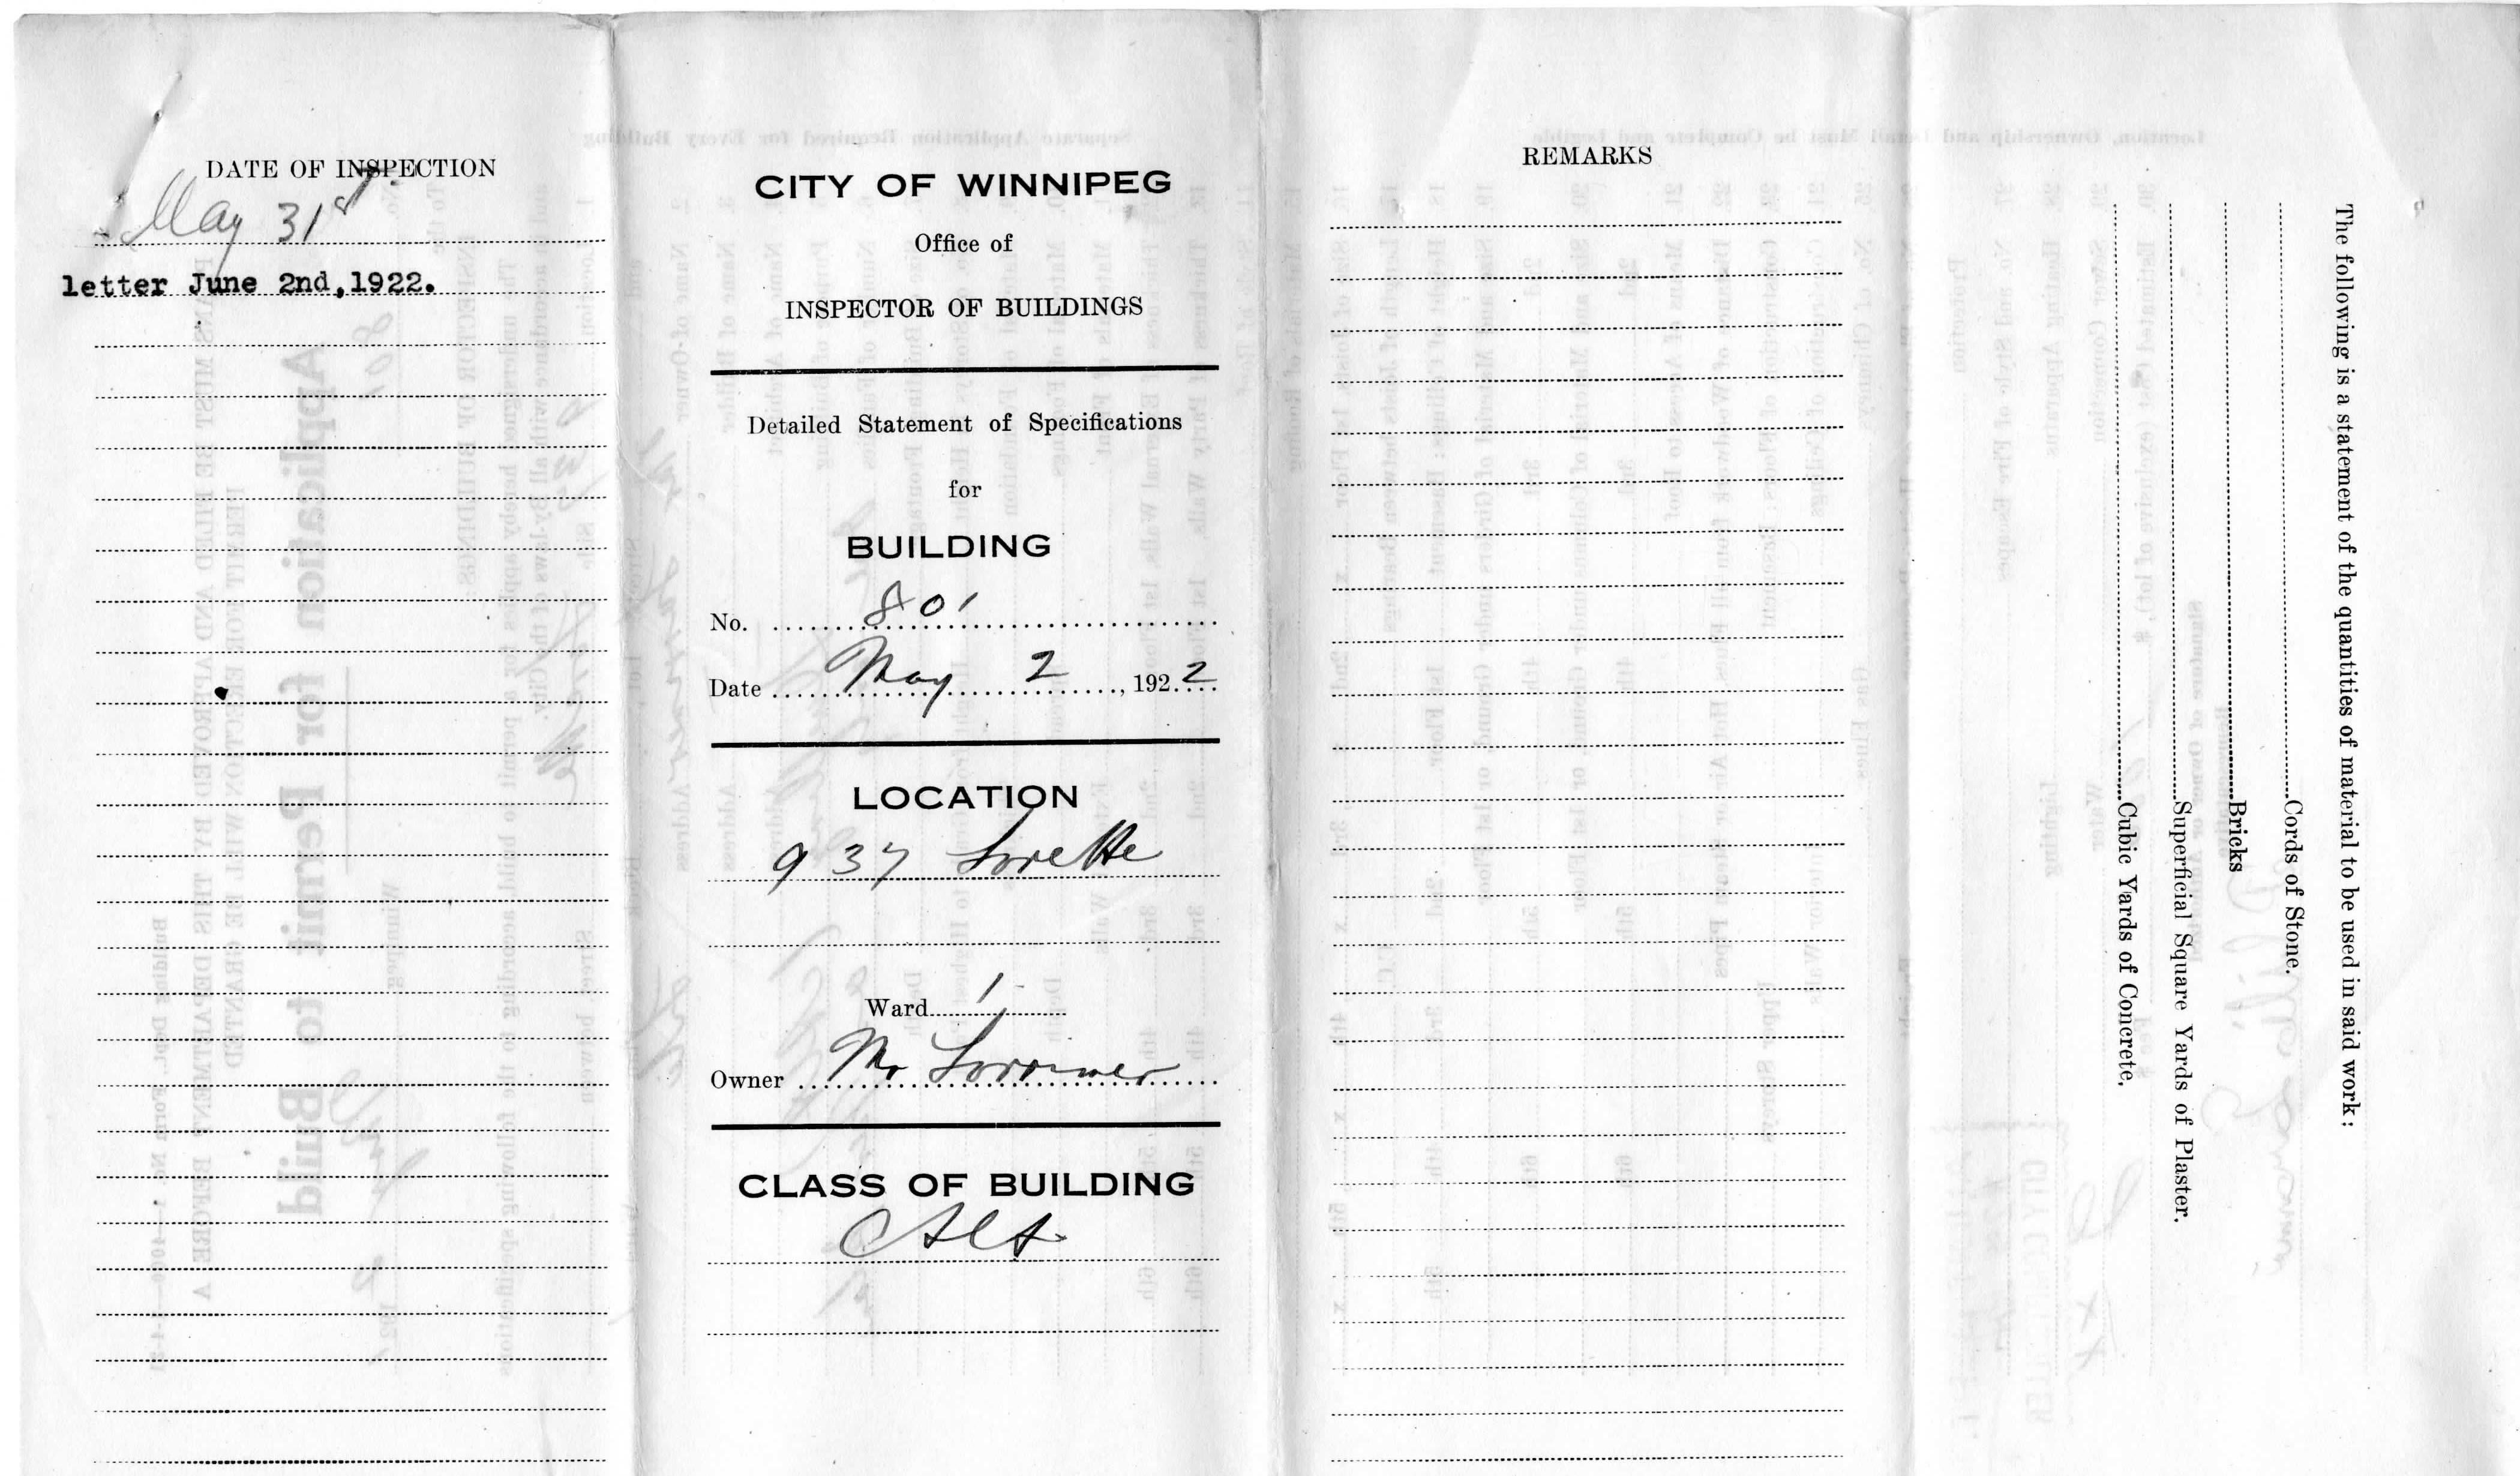 DATE OF INSPECTION
May 31st
letter June 2nd, 1922.
CITY OF WINNIPEG
Office of
INSPECTOR OF BUILDINGS
Detailed Statement of Specifications
for
BUILDING
No. 801
Date May 2, 1922
LOCATION
937 Lorette
Ward 1
Owner Mr Lorrimer
CLASS OF BUILDING
Alt
REMARKS
The following is a statement of the quantities of material to be used in said work:
Cords of Stone.
Bricks
Superficial Square Yards of Plaster.
Cubic Yards of Concrete.